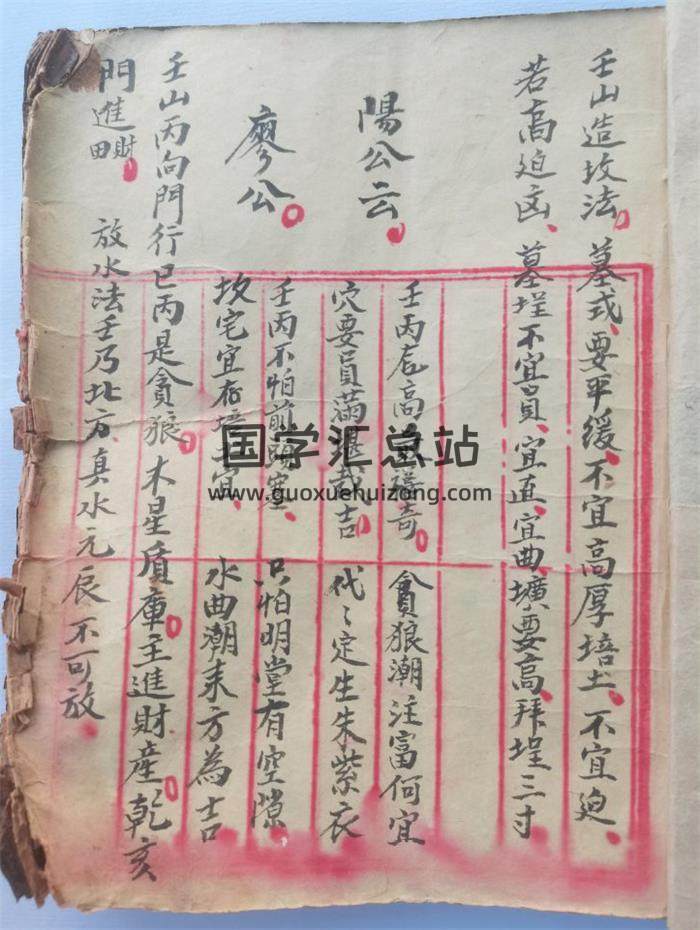 壬山造坟法。墓式、要平缓、不宜高厚培土、不宜迫、
若高迫凶、墓埕不宜員、宜直、宜曲、壙要高、拜埕三寸
陽公云。壬丙 高 奇。貪狼潮注富何宜
穴要員滿 栽吉。代〻定生朱紫衣
廖公。壬丙不怕前頭塞、只怕明堂有空隙
坟宅宜存培土宜、水曲潮来方為吉
壬山丙向門行巳丙是貪狼。木星盾庫。主進財產。乾亥
門進財田。放水法壬乃北方、真水元辰不可放
国学汇总站
www.guoxuehuizong.com